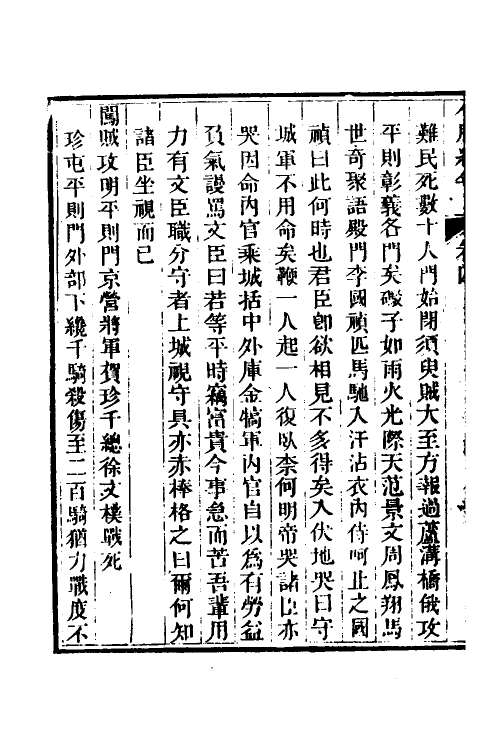 難民死數十人門始閉須臾賊大至方報過蘆溝橋俄攻
平則彰義各門矣礮子如雨火光際天范景文周鳳翔馬
世奇聚語殿門李國禎匹馬馳入汗沾衣內侍呵止之國
禎曰此何時也君臣卽欲相見不多得矣入伏地哭曰守
城軍不用命矣鞭一人起一人復臥柰何明帝哭諸臣亦
哭因命內官乘城括中外庫金犒軍內官自以爲有勞益
負氣謾罵文臣曰若等平時竊富貴今事急而苦吾輩用
力有文臣職分守者上城視守具亦赤棒格之曰爾何知
諸臣坐視而已
闖賊攻明平則門京營將軍賀珍千總徐文樸戰死
珍屯平則門外部下纔千騎殺傷至二百騎猶力戰度不